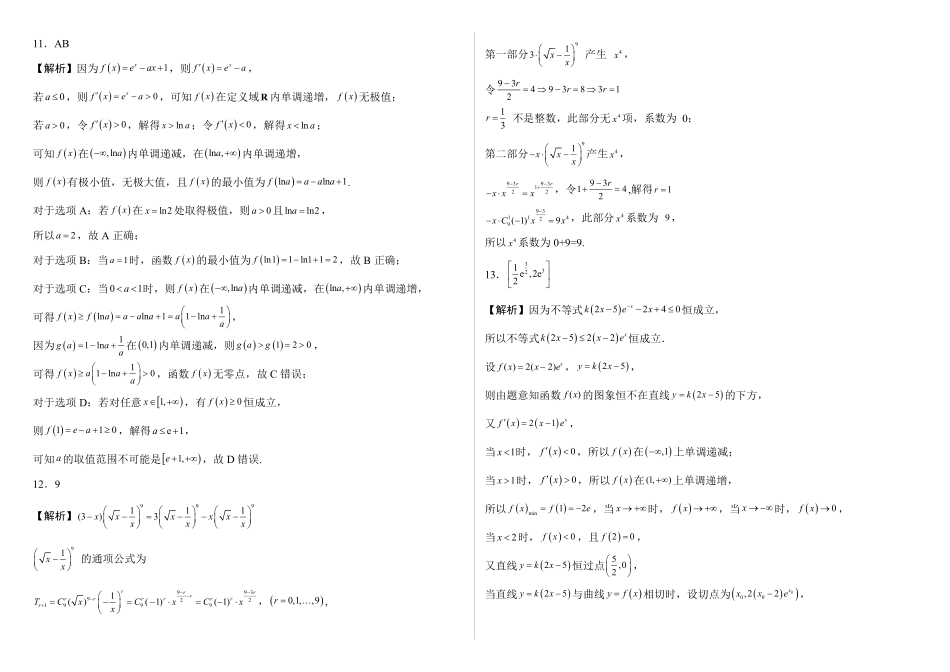 11．AB
【解析】因为 f(x)=e^x-ax+1，则 f′(x)=e^x-a，
若 a≤0，则 f′(x)=e^x-a>0，可知 f(x) 在定义域 R 内单调递增，f(x) 无极值；
若 a>0，令 f′(x)>0，解得 x>ln a；令 f′(x)<0，解得 x<ln a；
可知 f(x) 在 (-∞,lna) 内单调递减，在 (lna,+∞) 内单调递增，
则 f(x) 有极小值，无极大值，且 f(x) 的最小值为 f(lna)=a-alna+1.
对于选项 A：若 f(x) 在 x=ln2 处取得极值，则 a>0 且 lna=ln2，
所以 a=2，故 A 正确；
对于选项 B：当 a=1 时，函数 f(x) 的最小值为 f(ln1)=1-ln1+1=2，故 B 正确；
对于选项 C：当 0<a<1 时，则 f(x) 在 (-∞,lna) 内单调递减，在 (lna,+∞) 内单调递增，
可得 f(x)≥f(lna)=a-alna+1=a(1-lna+1/a)，
因为 g(a)=1-lna+1/a 在 (0,1) 内单调递减，则 g(a)>g(1)=2>0，
可得 f(x)≥a(1-lna+1/a)>0，函数 f(x) 无零点，故 C 错误；
对于选项 D：若对任意 x∈[1,+∞)，有 f(x)≥0 恒成立，
则 f(1)=e-a+1≥0，解得 a≤e+1，
可知 a 的取值范围不可能是 [e+1,+∞)，故 D 错误.
12．9
【解析】(3-x)(√x-1/x)^9=3(√x-1/x)^9-x(√x-1/x)^9
(√x-1/x)^9 的通项公式为
T_{r+1}=C_9^r(√x)^{9-r}(-1/x)^r=C_9^r(-1)^r·x^{(9-r)/2-r}=C_9^r(-1)^r·x^{(9-3r)/2}，(r=0,1,…,9)，
第一部分 3·(√x-1/x)^9 产生 x^4，
令 (9-3r)/2=4⇒9-3r=8⇒3r=1
r=1/3 不是整数，此部分无 x^4 项，系数为 0；
第二部分 -x·(√x-1/x)^9 产生 x^4，
-x·x^{(9-3r)/2}=x^{1+(9-3r)/2}，令 1+(9-3r)/2=4,解得 r=1
-x·C_9^1(-1)^1x^{(9-3)/2}=9x^4，此部分 x^4 系数为 9，
所以 x^4 系数为 0+9=9.
13．[1/2 e^{3/2},2e^3]
【解析】因为不等式 k(2x-5)e^{-x}-2x+4≤0 恒成立，
所以不等式 k(2x-5)≤2(x-2)e^x 恒成立．
设 f(x)=2(x-2)e^x，y=k(2x-5)，
则由题意知函数 f(x) 的图象恒不在直线 y=k(2x-5) 的下方，
又 f′(x)=2(x-1)e^x，
当 x<1 时，f′(x)<0，所以 f(x) 在 (-∞,1) 上单调递减；
当 x>1 时，f′(x)>0，所以 f(x) 在 (1,+∞) 上单调递增，
所以 f(x)_{min}=f(1)=-2e，当 x→+∞ 时，f(x)→+∞，当 x→-∞ 时，f(x)→0，
当 x<2 时，f(x)<0，且 f(2)=0，
又直线 y=k(2x-5) 恒过点 (5/2,0)，
当直线 y=k(2x-5) 与曲线 y=f(x) 相切时，设切点为 (x_0,2(x_0-2)e^{x_0})，